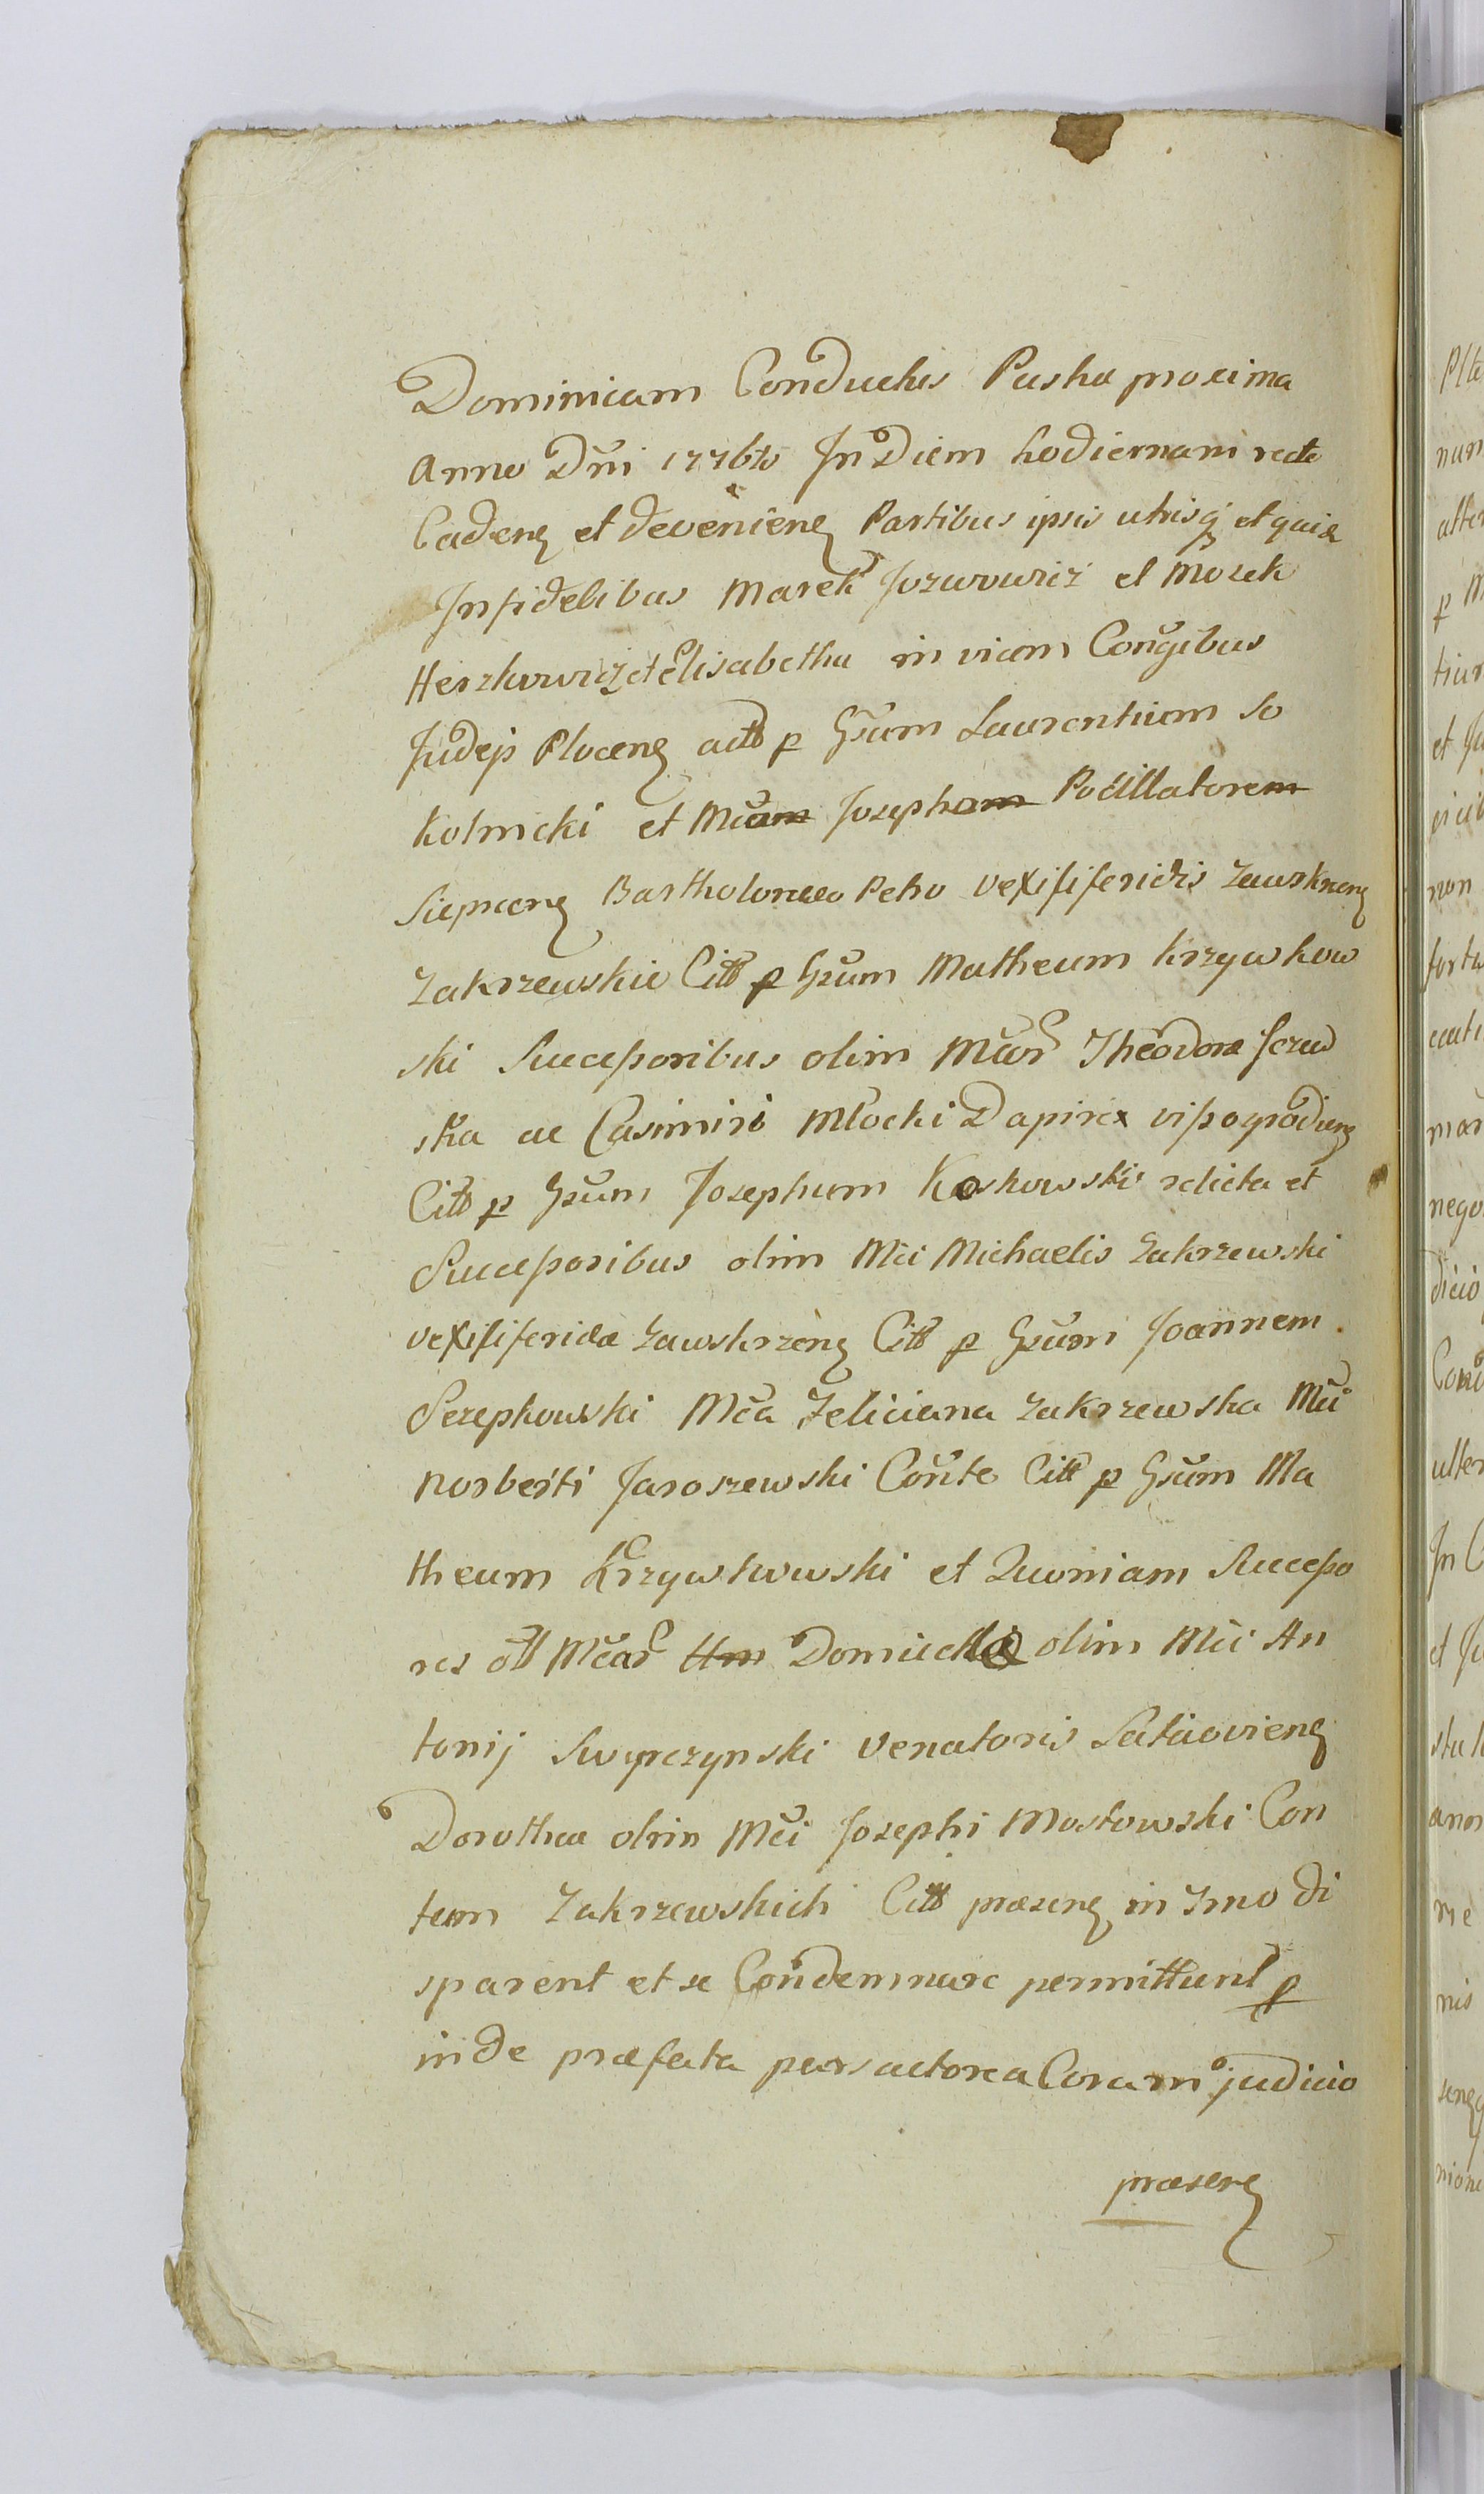 Dominicam Conductus Pasha proxima
Anno Dni 1776to In Diem hodiernam recte
Caden et devenien Partibus ipsis utrisq et quia
Infidelibus Marek Jozwowicz et Mosek
Herzkowicz et Elisabetha in vicem Coniugibus
Judeis Plocen actt p Gsum Laurentium So
kolnicki et Mcum Josephum Pocillatorem
Sieprcen Bartholomeo Petro vexilliferidis Zawskrzen
Zakrzewskie Citt p Gsum Matheum Krzywkow
ski Successoribus olim Mcar Theodora
ska ac Casimiri Młocki Dapiri vissogrodien
Citt p Gsum Josephum Koskowski relicta et
Successoribus olim Mci Michaelis Zakrzewski
vexilliferida Zawskrzen Citt p Gsum Joannem
Szepkowski Mca Feliciana Zakrzewska Mci
Norberti Jaroszewski Conte Citt p Gsum Ma
theum Krzywkowski et Quoniam Successo
res ott Mcar Domicella olim Mci An
tonij Swyrczynski Venatoris
Dorothea olim Mci Josephi Mostowski Con
tum Zakrzewskich Citt præsen in Imo di
sparent et se Condemnare permittunt p
inde præfata pars actorea Coram judicio
præsen
Plte
num
p M
et Ju
non
forta
mar
nego
dicio
ulter
In C
et Ju
me
nis